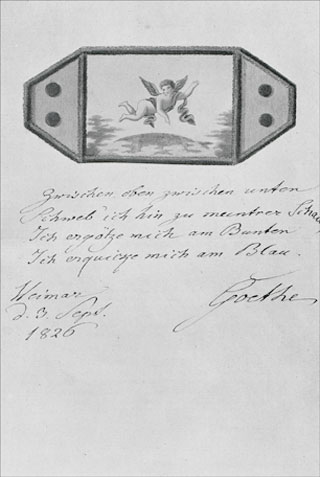 Zwischen oben zwischen unten
Schweb' ich hin zu muntrer Schau
Ich ergötze mich am Bunten
Ich erquicke mich am Blau.
Weimar
d. 3. Sept.
1826
Goethe